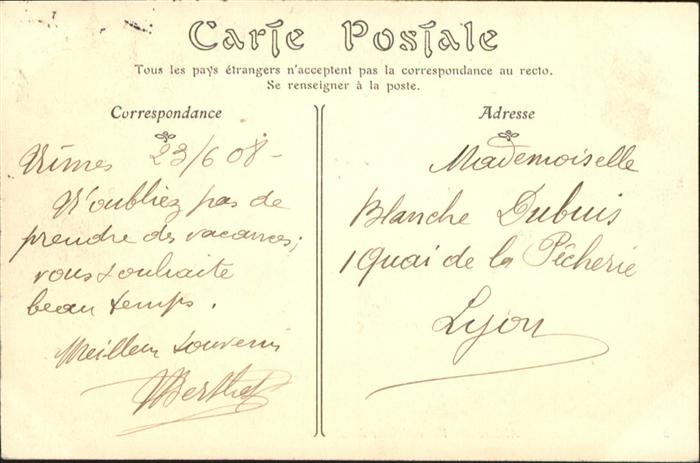 Carte Postale
Tous les pays étrangers n'acceptent pas la correspondance au recto.
Se renseigner à la poste.
Correspondance
Nîmes 23/6 08-
N'oubliez pas de
prendre des vacances;
vous souhaite
beau temps.
Meilleur souvenir
Adresse
Mademoiselle
Blanche Dubuis
1 Quai de la Pêcherie
Lyon